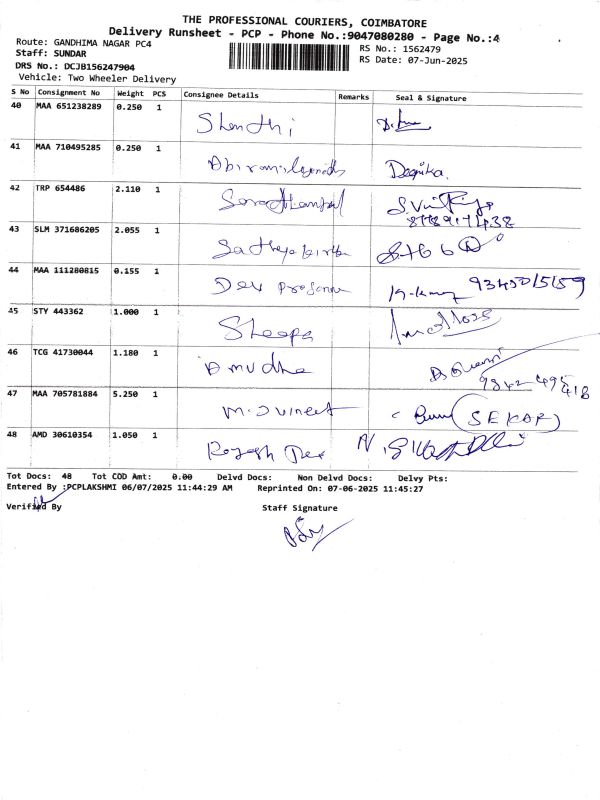 THE PROFESSIONAL COURIERS, COIMBATORE
Delivery Runsheet - PCP - Phone No.:9047080280 - Page No.:4
Route: GANDHIMA NAGAR PC4
RS No.: 1562479
Staff: SUNDAR
RS Date: 07-Jun-2025
DRS No.: DCJB156247904
Vehicle: Two Wheeler Delivery
S No Consignment No Weight PCS Consignee Details Remarks Seal & Signature
40 MAA 651238289 0.250 1 Shenthi
41 MAA 710495285 0.250 1 Deepika.
42 TRP 654486 2.110 1
43 SLM 371686205 2.055 1
44 MAA 111280815 0.155 1 Dev Prasanna 9345015159
45 STY 443362 1.000 1 Sheepa
46 TCG 41730044 1.180 1 Amudha
47 MAA 705781884 5.250 1 M. Vineet (SEKAR)
48 AMD 30610354 1.050 1 Rajesh Dev
Tot Docs: 48 Tot COD Amt: 0.00 Delvd Docs: Non Delvd Docs: Delvy Pts:
Entered By :PCPLAKSHMI 06/07/2025 11:44:29 AM Reprinted On: 07-06-2025 11:45:27
Verified By Staff Signature